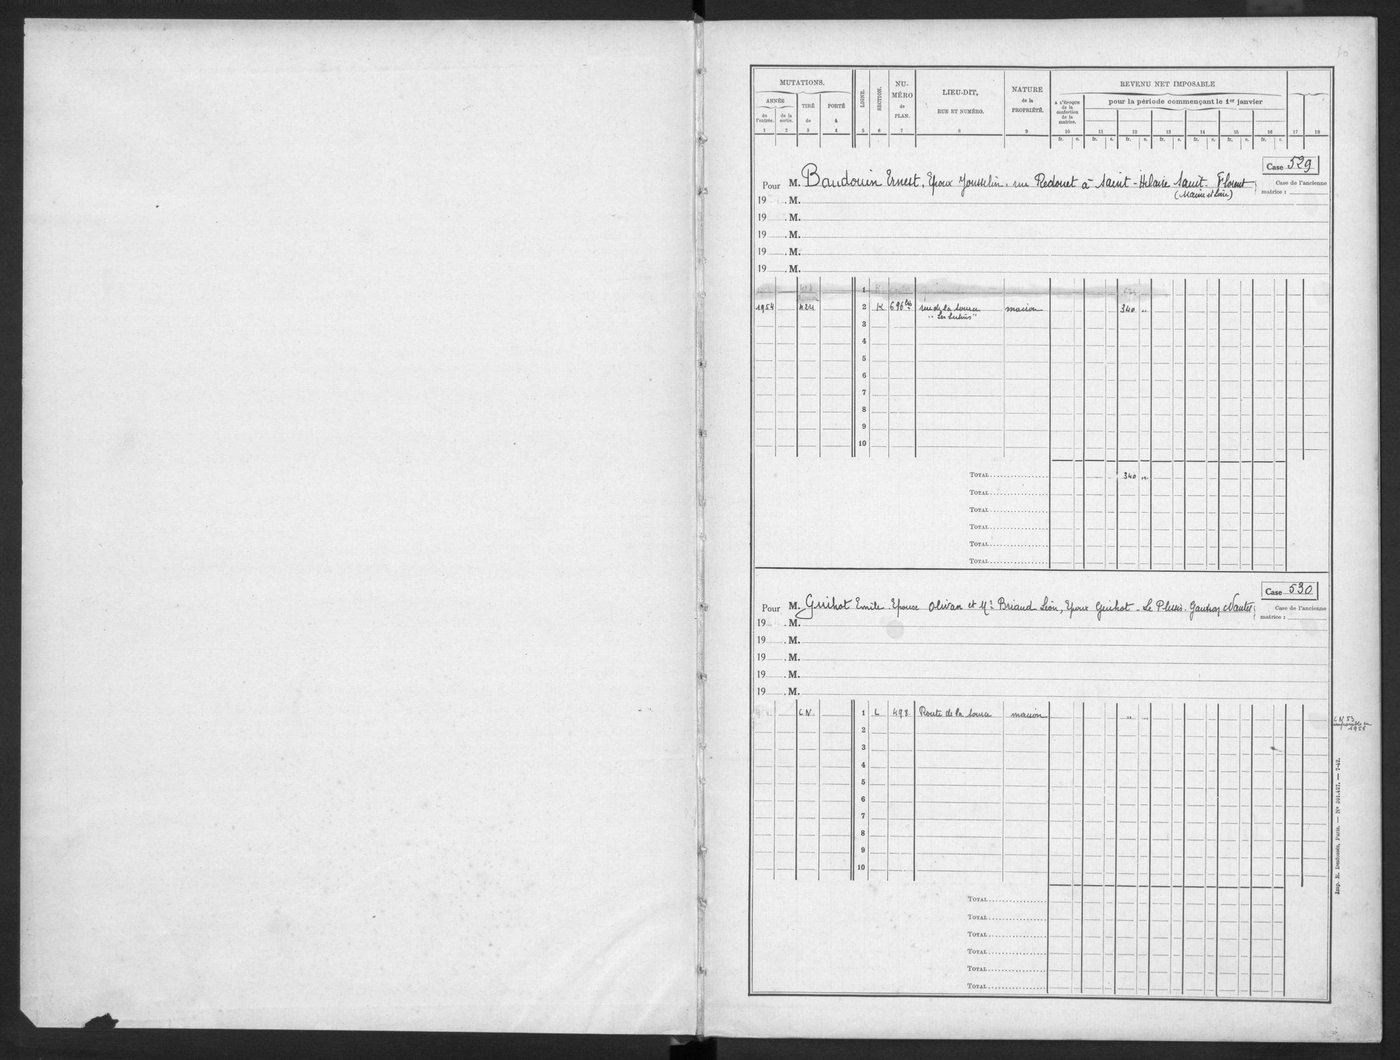 MUTATIONS.
ANNÉE
de l'entrée.
de la sortie.
TIRÉ de
PORTÉ à
LIGNE.
SECTION.
NUMÉRO de PLAN.
LIEU-DIT,
RUE ET NUMÉRO.
NATURE
de la
PROPRIÉTÉ.
REVENU NET IMPOSABLE
A L'ÉPOQUE de la confection de la matrice.
pour la période commençant le 1er janvier
1 2 3 4 5 6 7 8 9 10 11 12 13 14 15 16 17 18
fr. c. fr. c. fr. c. fr. c. fr. c. fr. c. fr. c.
Case 529
Pour M. Baudouin Ernest, Epoux Jousselin, rue Redouet à Saint-Hilaire Saint-Florent
(Maine et Loire)
Case de l'ancienne
matrice :
19 . M.
19 . M.
19 . M.
19 . M.
19 . M.
1
1954 424 2 K 696 bis rue de la source maison 340 "
3
4
5
6
7
8
9
10
TOTAL 340 "
TOTAL
TOTAL
TOTAL
TOTAL
TOTAL
Case 530
Pour M. Guihot Emile Epouse Olivan et Mr Briand Léon, Epoux Guihot - Le Plessis Nantes
Case de l'ancienne
matrice :
19 . M.
19 . M.
19 . M.
19 . M.
19 . M.
C.N. 1 L 498 Route de la source maison " "
C N 53
imposable en
2
3
4
5
6
7
8
9
10
TOTAL
TOTAL
TOTAL
TOTAL
TOTAL
TOTAL